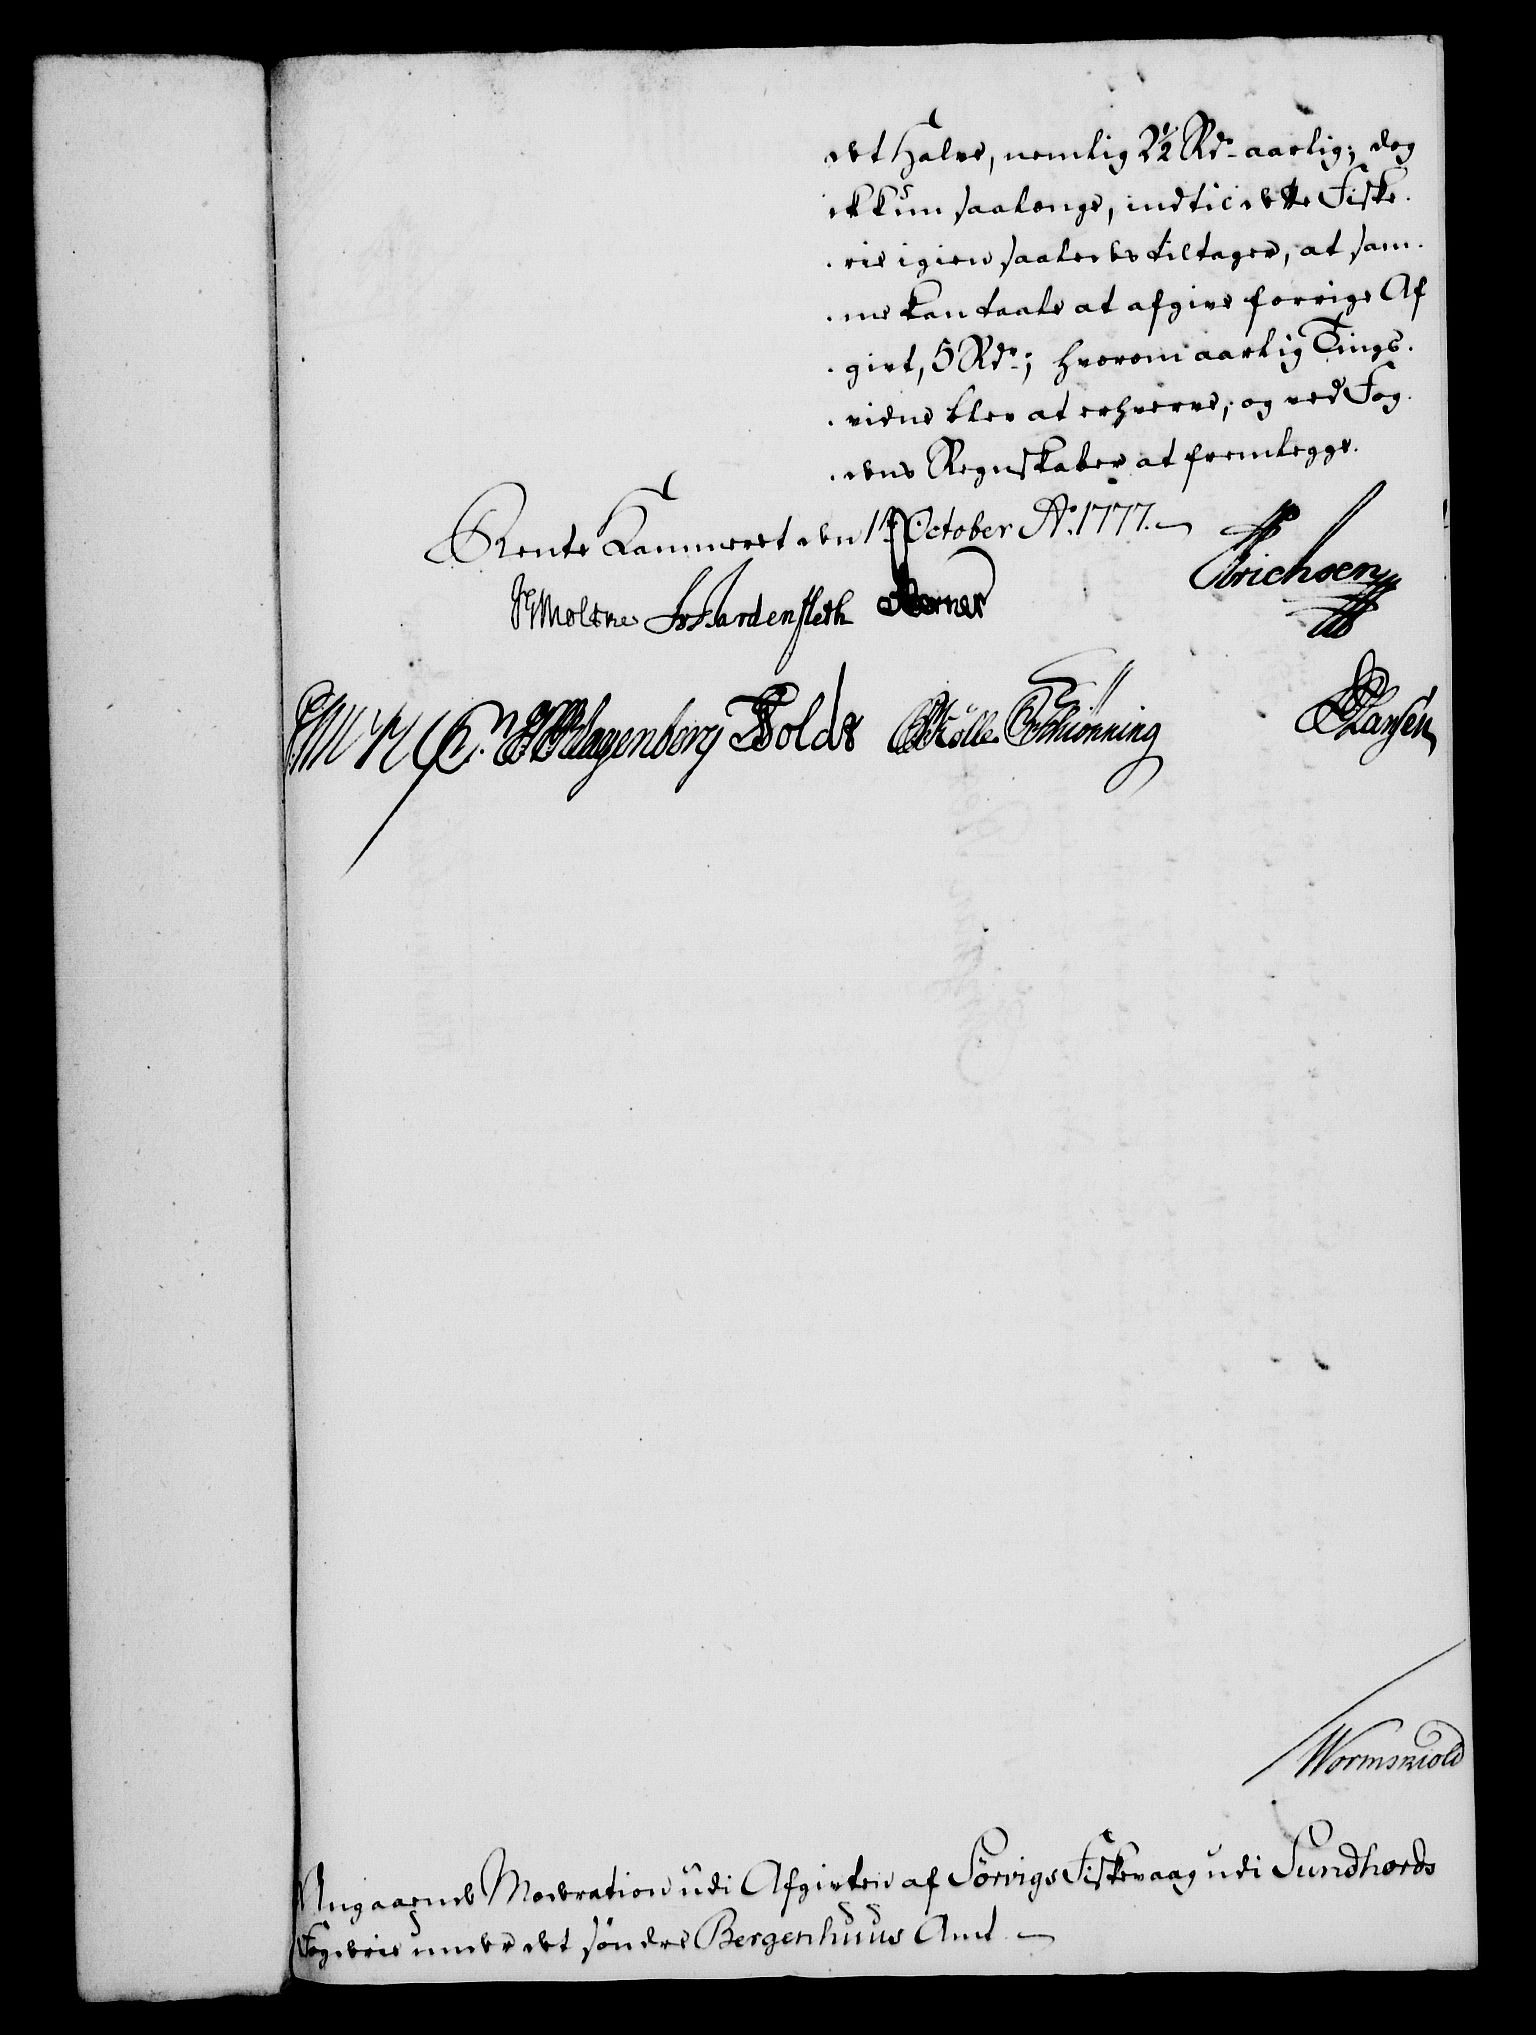 det Halve, nemlig 2½ Rdr. aarlig; dog
ikkun saalænge, indtil dette Fiske-
rie igien saaledes tiltager, at sam-
me kan taale at afgive forrige Af-
givt, 5 Rdr.; hvorom aarlig Tings-
vidne blev at erhverve, og ved Fog-
dens Regnskaber at fremlegge.
Rente Kammeret den 14 October Ao. 1777.
JGMoltke Hardenfleth Erichsen
Klagenberg Holde Kølle Schiønning Hansen
Wormskiold
Angaaende Moderation udi Afgivten af Sörvigs Fiskevaag udi Sundhords
Fogderie under det söndre Bergenhuus Amt.